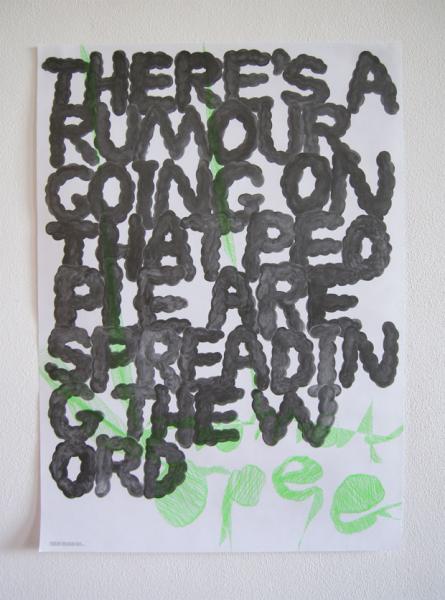 THERE'S A
RUMOUR
GOING ON
THAT PEO
PLE ARE
SPREADIN
G THE W
ORD